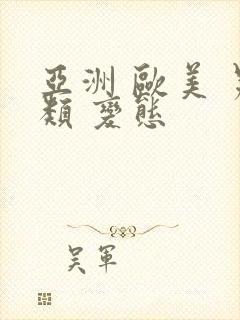 亞洲歐美
類變態
吴軍